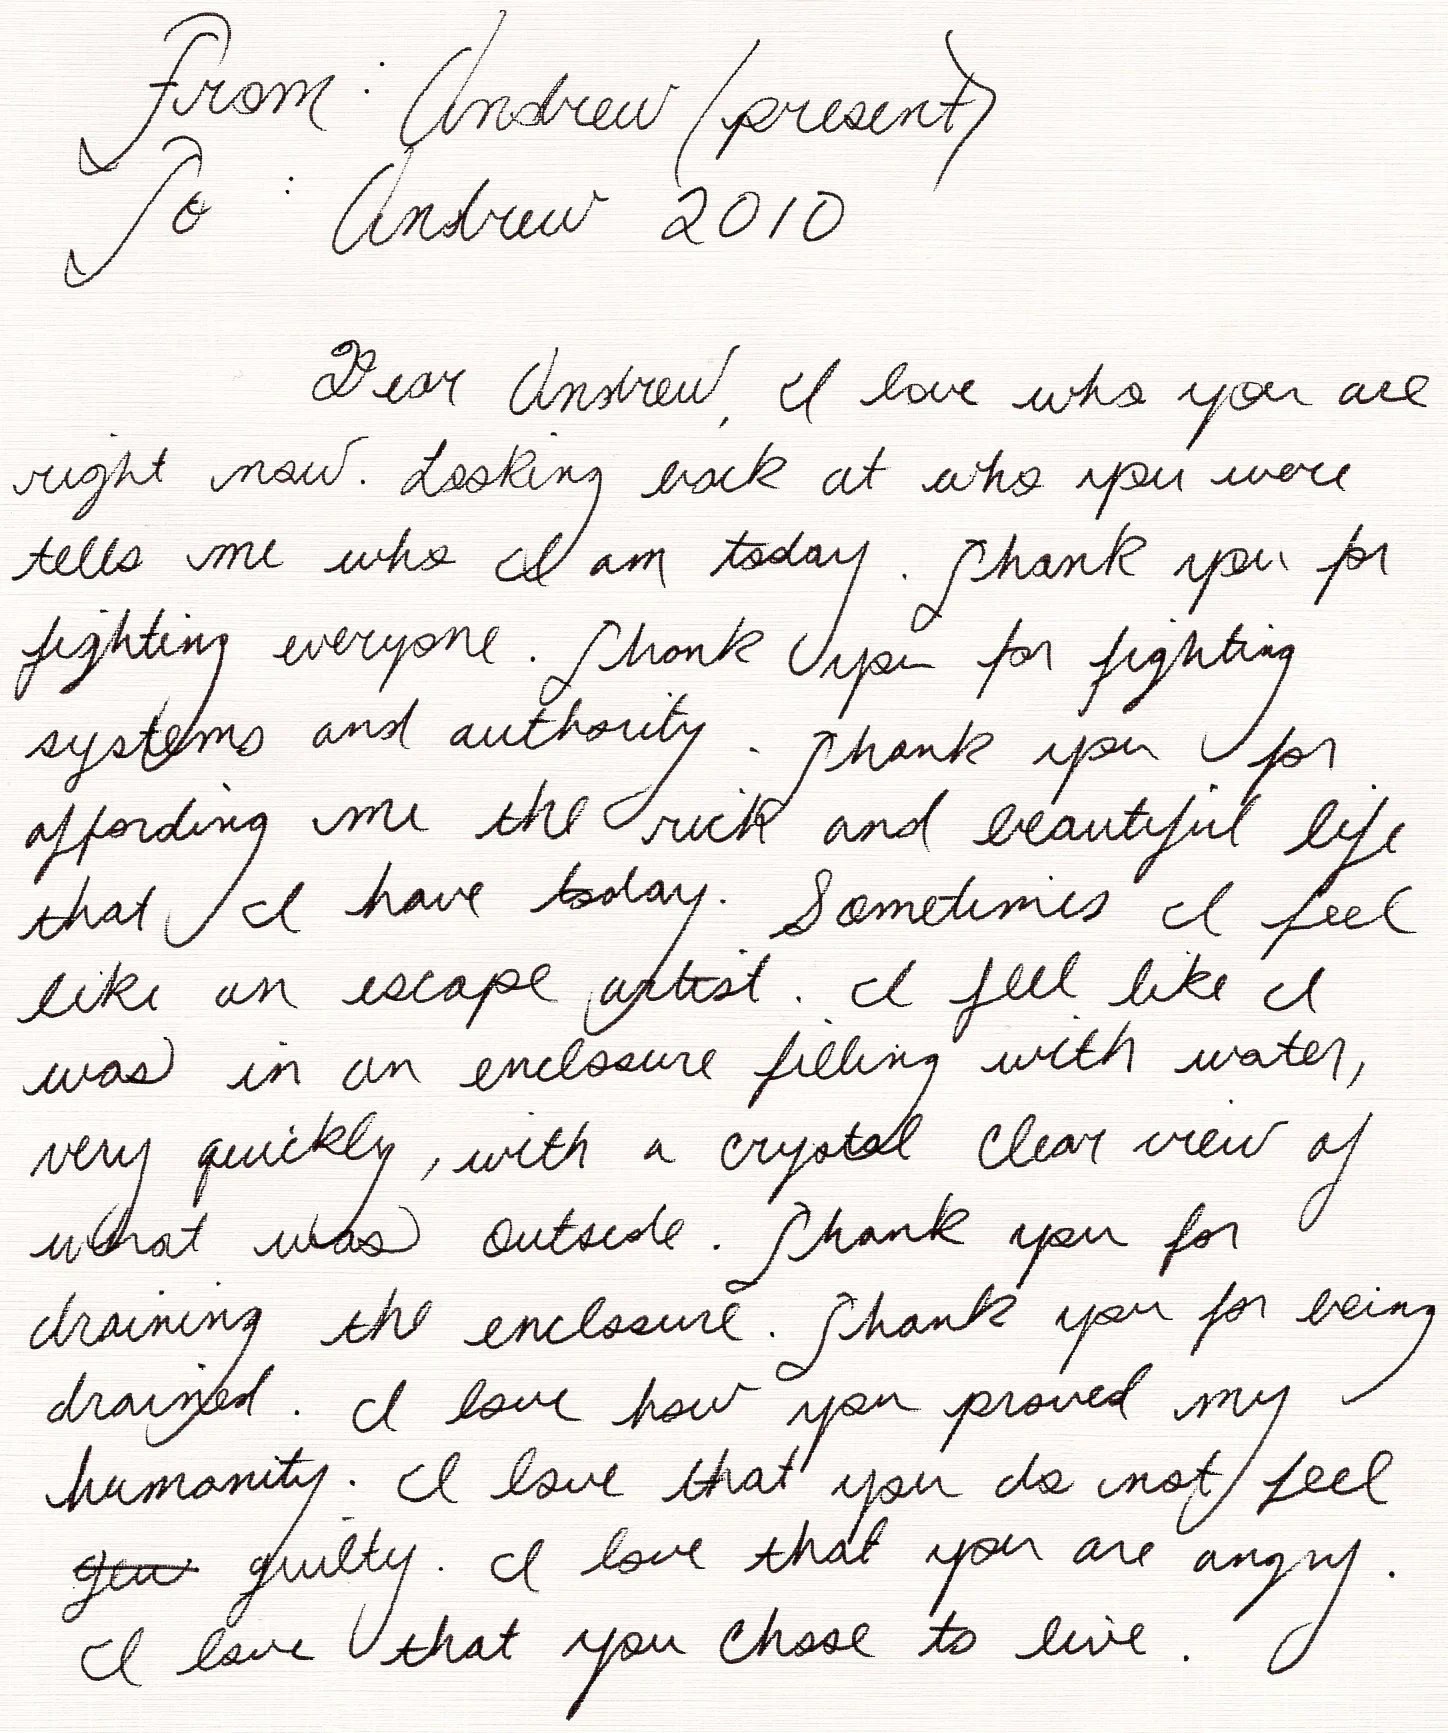 From: Andrew (present)
To: Andrew 2010
Dear Andrew, I love who you are
right now. Looking back at who you were
tells me who I am today. Thank you for
fighting everyone. Thank you for fighting
systems and authority. Thank you for
affording me the rich and beautiful life
that I have today. Sometimes I feel
like an escape artist. I feel like I
was in an enclosure filling with water,
very quickly, with a crystal clear view of
what was outside. Thank you for
draining the enclosure. Thank you for being
drained. I love how you proved my
humanity. I love that you do not feel
guilty. I love that you are angry.
I love that you chose to live.